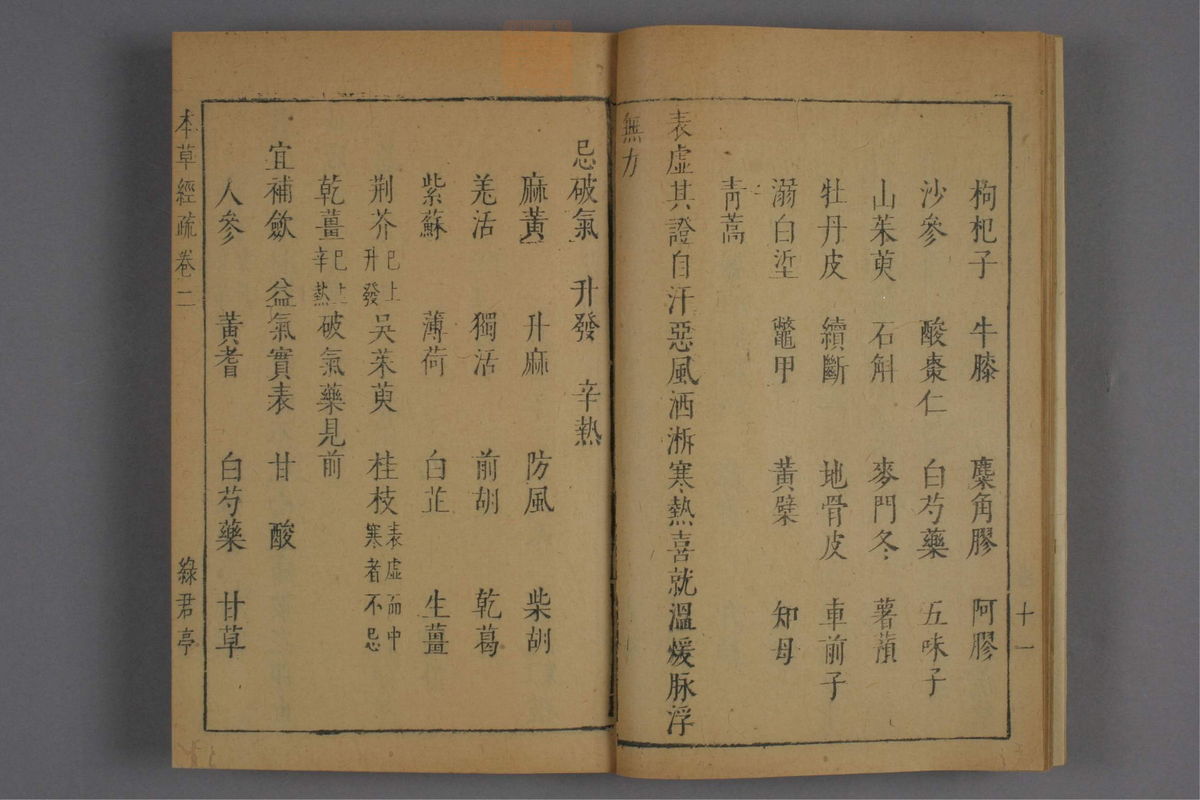 十一
枸杞子 牛膝 麋角膠 阿膠
沙參 酸棗仁 白芍藥 五味子
山茱萸 石斛 麥門冬 薯蕷
牡丹皮 續斷 地骨皮 車前子
溺白垽 鼈甲 黃檗 知母
青蒿
表虛其證自汗惡風洒淅寒熱喜就溫煖脉浮
無力
忌破氣 升發 辛熱
麻黃 升麻 防風 柴胡
羌活 獨活 前胡 乾葛
紫蘇 薄荷 白芷 生薑
荆芥已上升發 吳茱萸 桂枝表虛而中寒者不忌
乾薑已上辛熱 破氣藥見前
宜補斂 益氣實表 甘 酸
人參 黃耆 白芍藥 甘草
本草經疏卷二 綠君亭